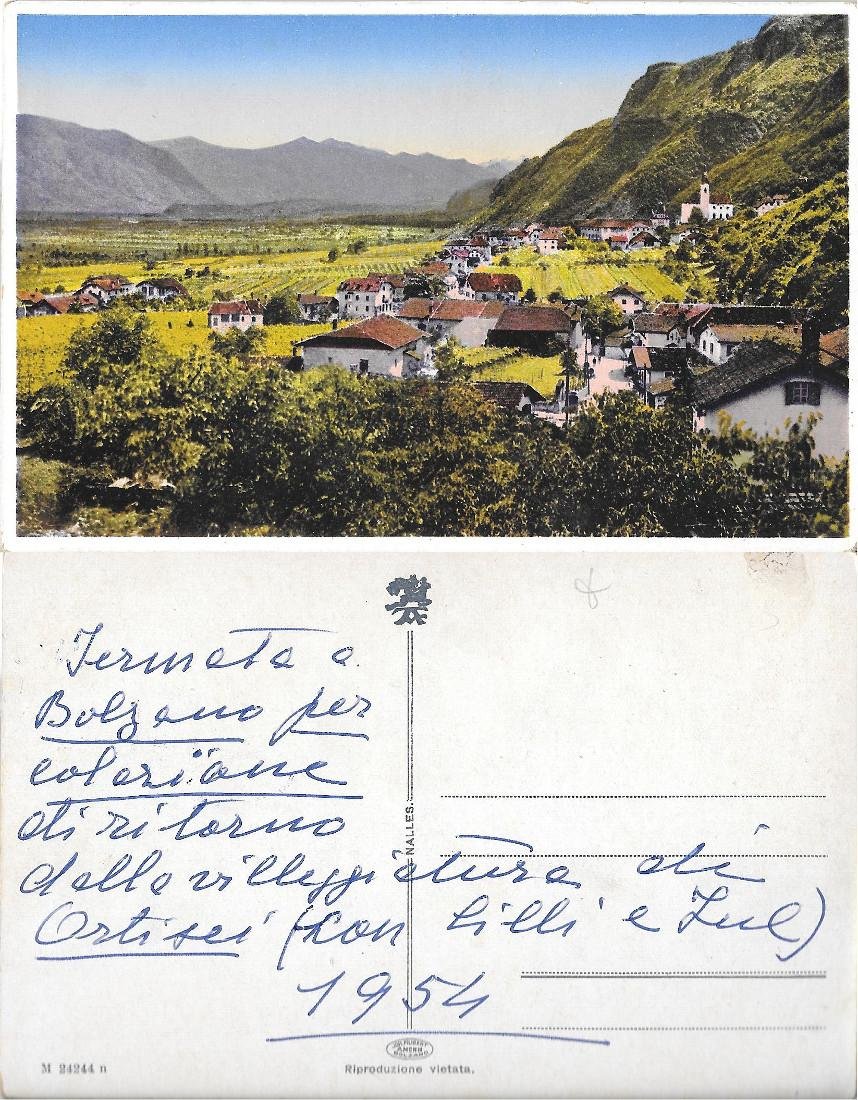 Fermata a
Bolzano per
colazione
di ritorno
dalla villeggiatura di
Ortisei (con Lilli e Jul)
1954
NALLES.
AMONN
BOLZANO
M 24244 n
Riproduzione vietata.